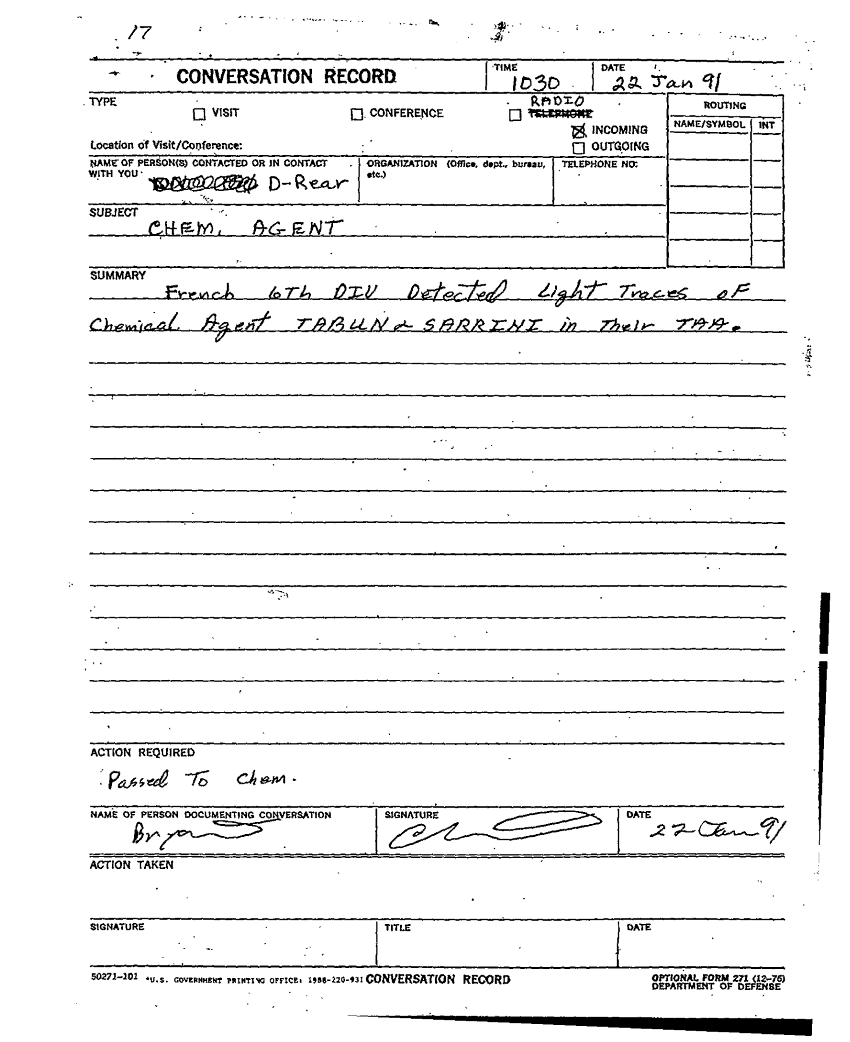 17
CONVERSATION RECORD
TIME
1030
DATE
22 Jan 91
TYPE
VISIT
CONFERENCE
RADIO
TELEPHONE
INCOMING
OUTGOING
ROUTING
NAME/SYMBOL INT
Location of Visit/Conference:
NAME OF PERSON(S) CONTACTED OR IN CONTACT
WITH YOU
D-Rear
ORGANIZATION (Office, dept., bureau,
etc.)
TELEPHONE NO:
SUBJECT
CHEM. AGENT
SUMMARY
French 6Th DIV Detected Light Traces oF
Chemical Agent TABUN & SARRINI in Their TAA.
ACTION REQUIRED
Passed To Chem.
NAME OF PERSON DOCUMENTING CONVERSATION
SIGNATURE
DATE
22 Jan 91
ACTION TAKEN
SIGNATURE
TITLE
DATE
50271-101 *U.S. GOVERNMENT PRINTING OFFICE: 1988-220-931 CONVERSATION RECORD
OPTIONAL FORM 271 (12-76)
DEPARTMENT OF DEFENSE